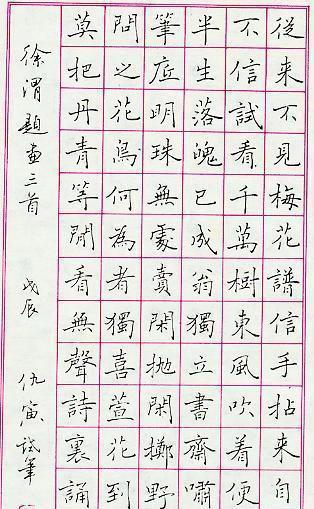 從来不見梅花譜信手拈来自
不信試看千萬樹東風吹着便
半生落魄已成翁獨立書齋嘯
筆底明珠無處賣閑抛閑擲野
問之花鳥何為者獨喜萱花到
莫把丹青等閒看無聲詩裏誦
徐渭題畫三首 戊辰 仇寅試筆